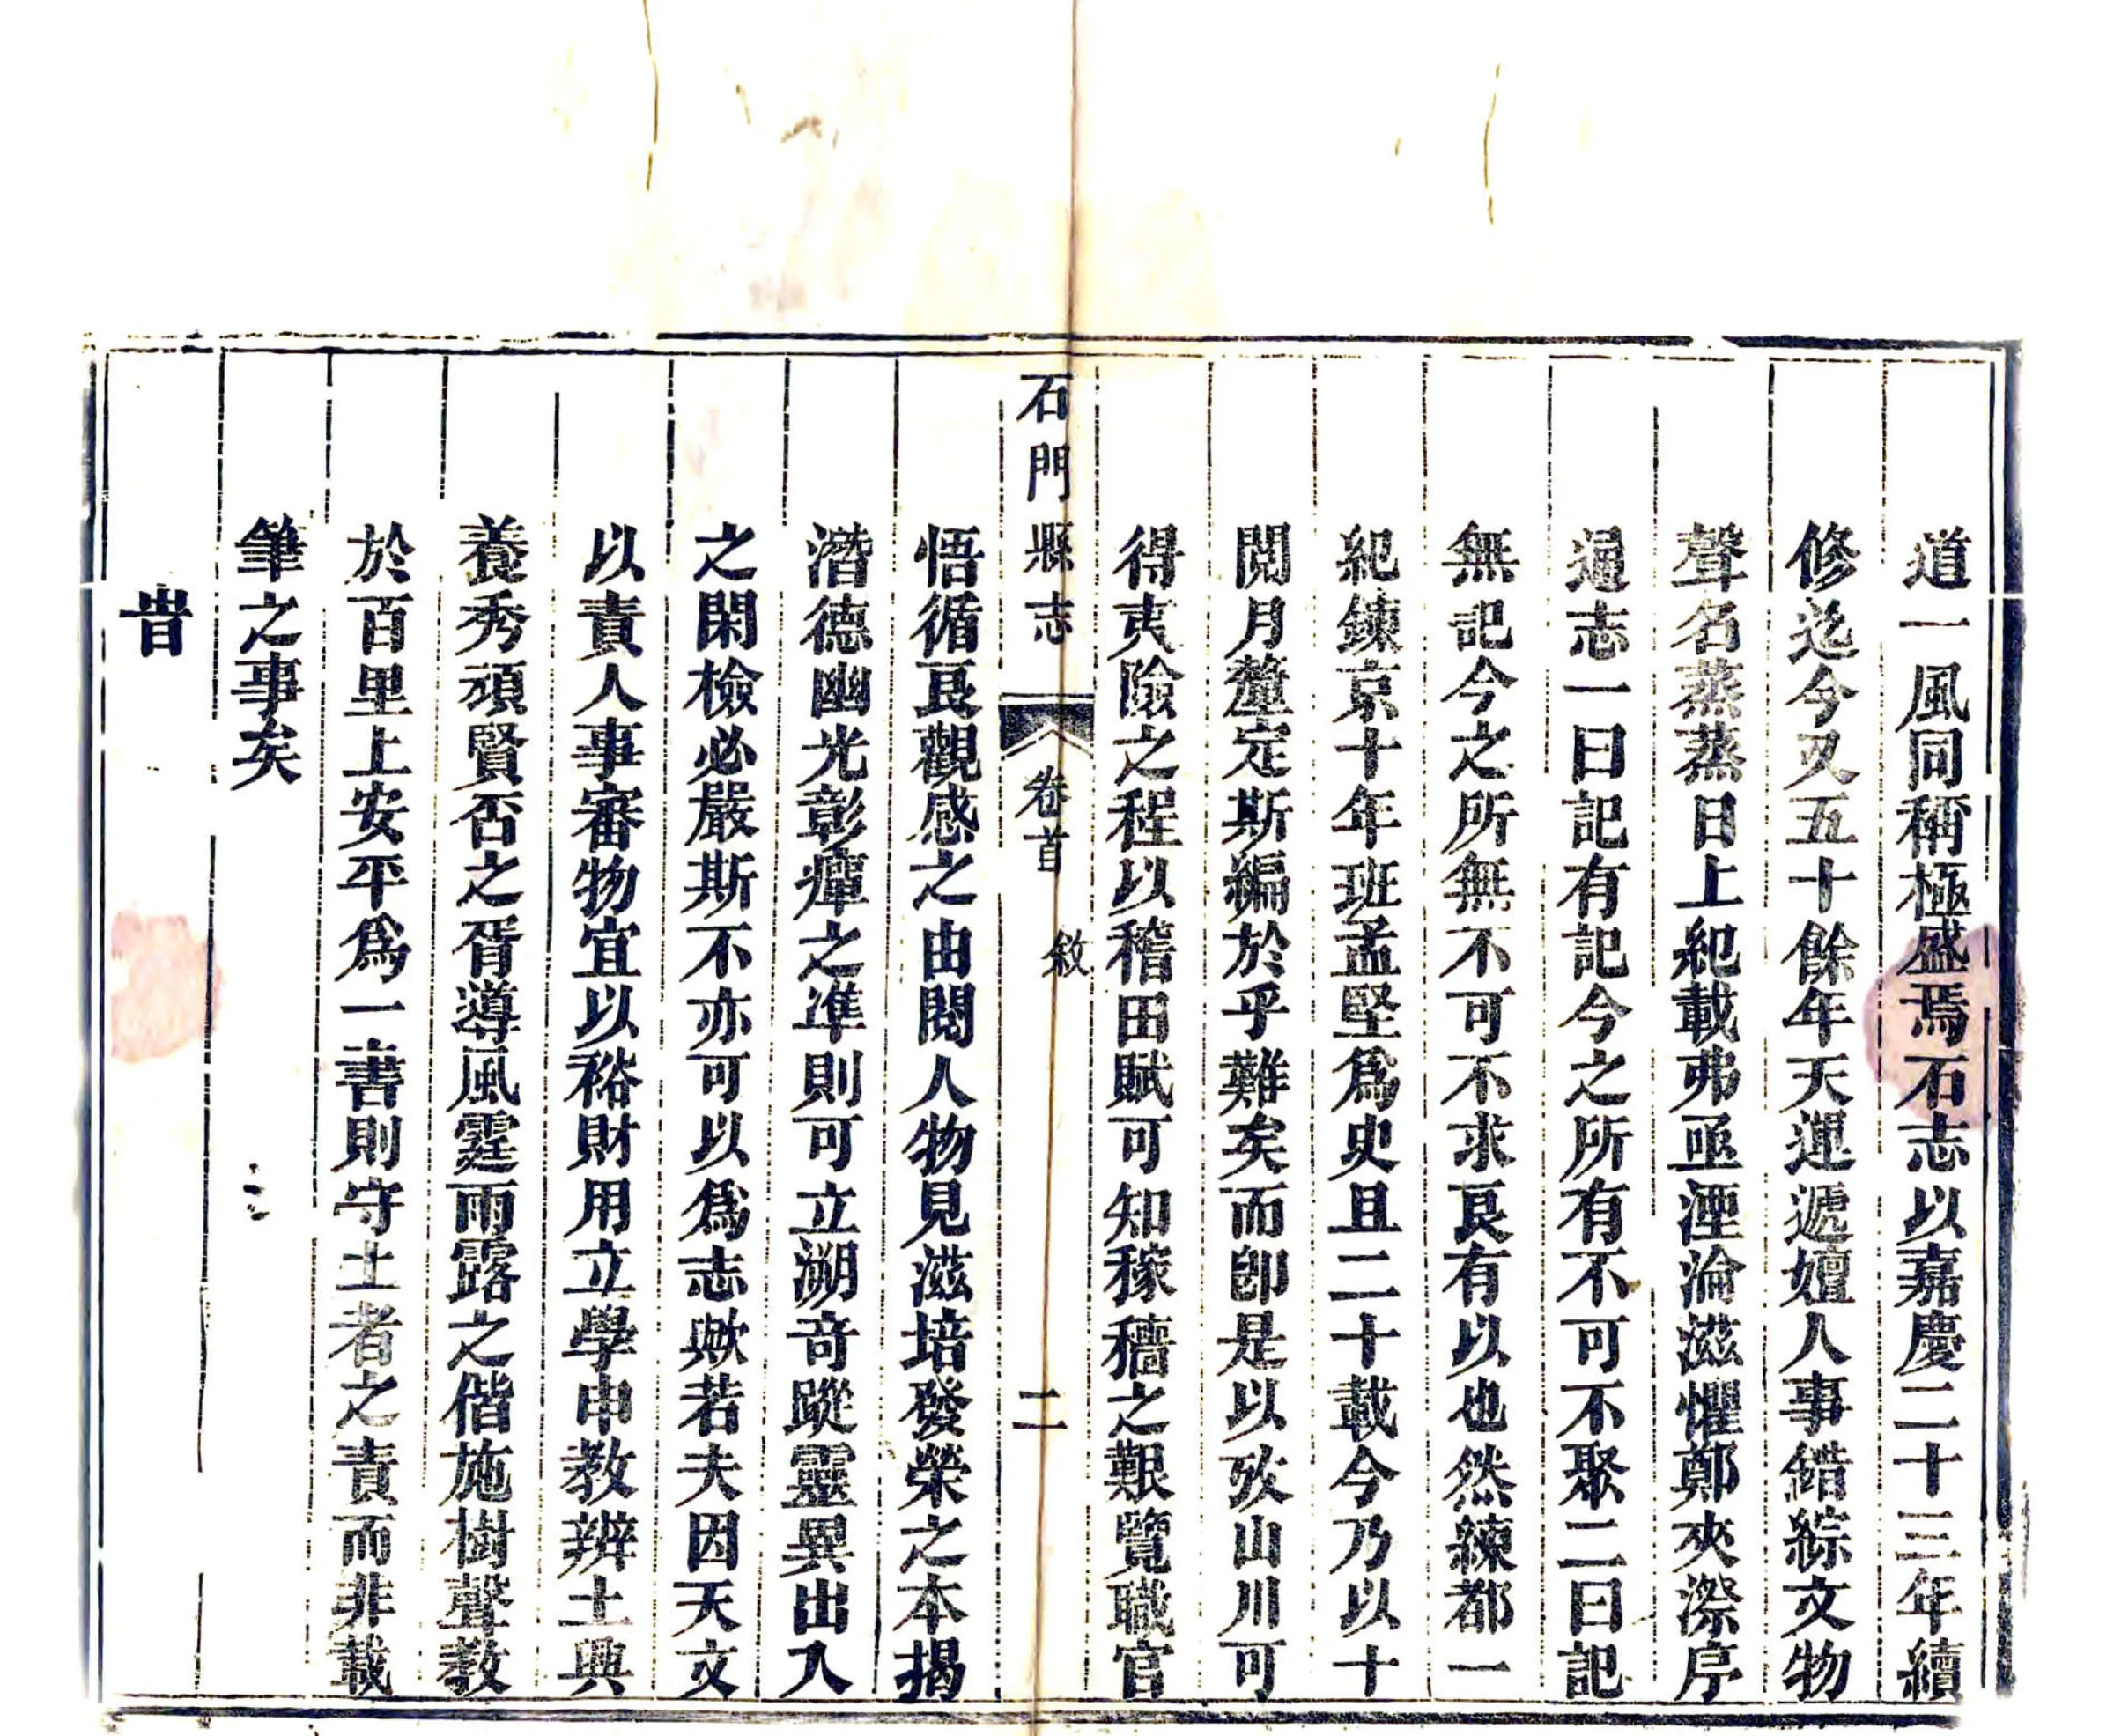 道一風同稱極盛焉石志以嘉慶二十三年續
修迄今又五十餘年天運遞嬗人事錯綜文物
聲名蒸蒸日上紀載弗亟湮淪滋懼鄭夾漈序
通志一曰記有記今之所有不可不聚二曰記
無記今之所無不可不求良有以也然練都一
紀鍊京十年班孟堅爲史且二十載今乃以十
閱月釐定斯編於乎難矣而卽是以攷山川可
得夷險之程以稽田賦可知稼穡之艱覽職官
石門縣志 卷首 敘 二
悟循良觀感之由閱人物見滋培發榮之本揭
潛德幽光彰癉之準則可立溯奇蹤靈異出入
之閑檢必嚴斯不亦可以爲志歟若夫因天文
以責人事審物宜以裕財用立學申教辨土興
養秀頑賢否之胥導風霆雨露之偕施樹聲教
於百里上安平爲一書則守土者之責而非載
筆之事矣
旹